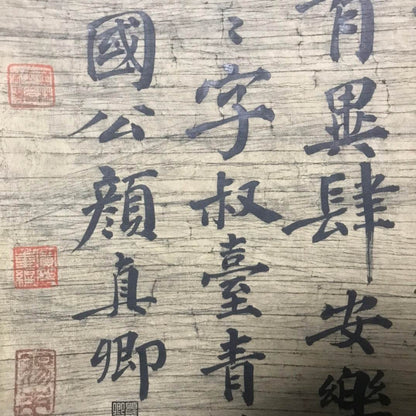 有異肆安樂
〻字叔臺青
國公顏真卿